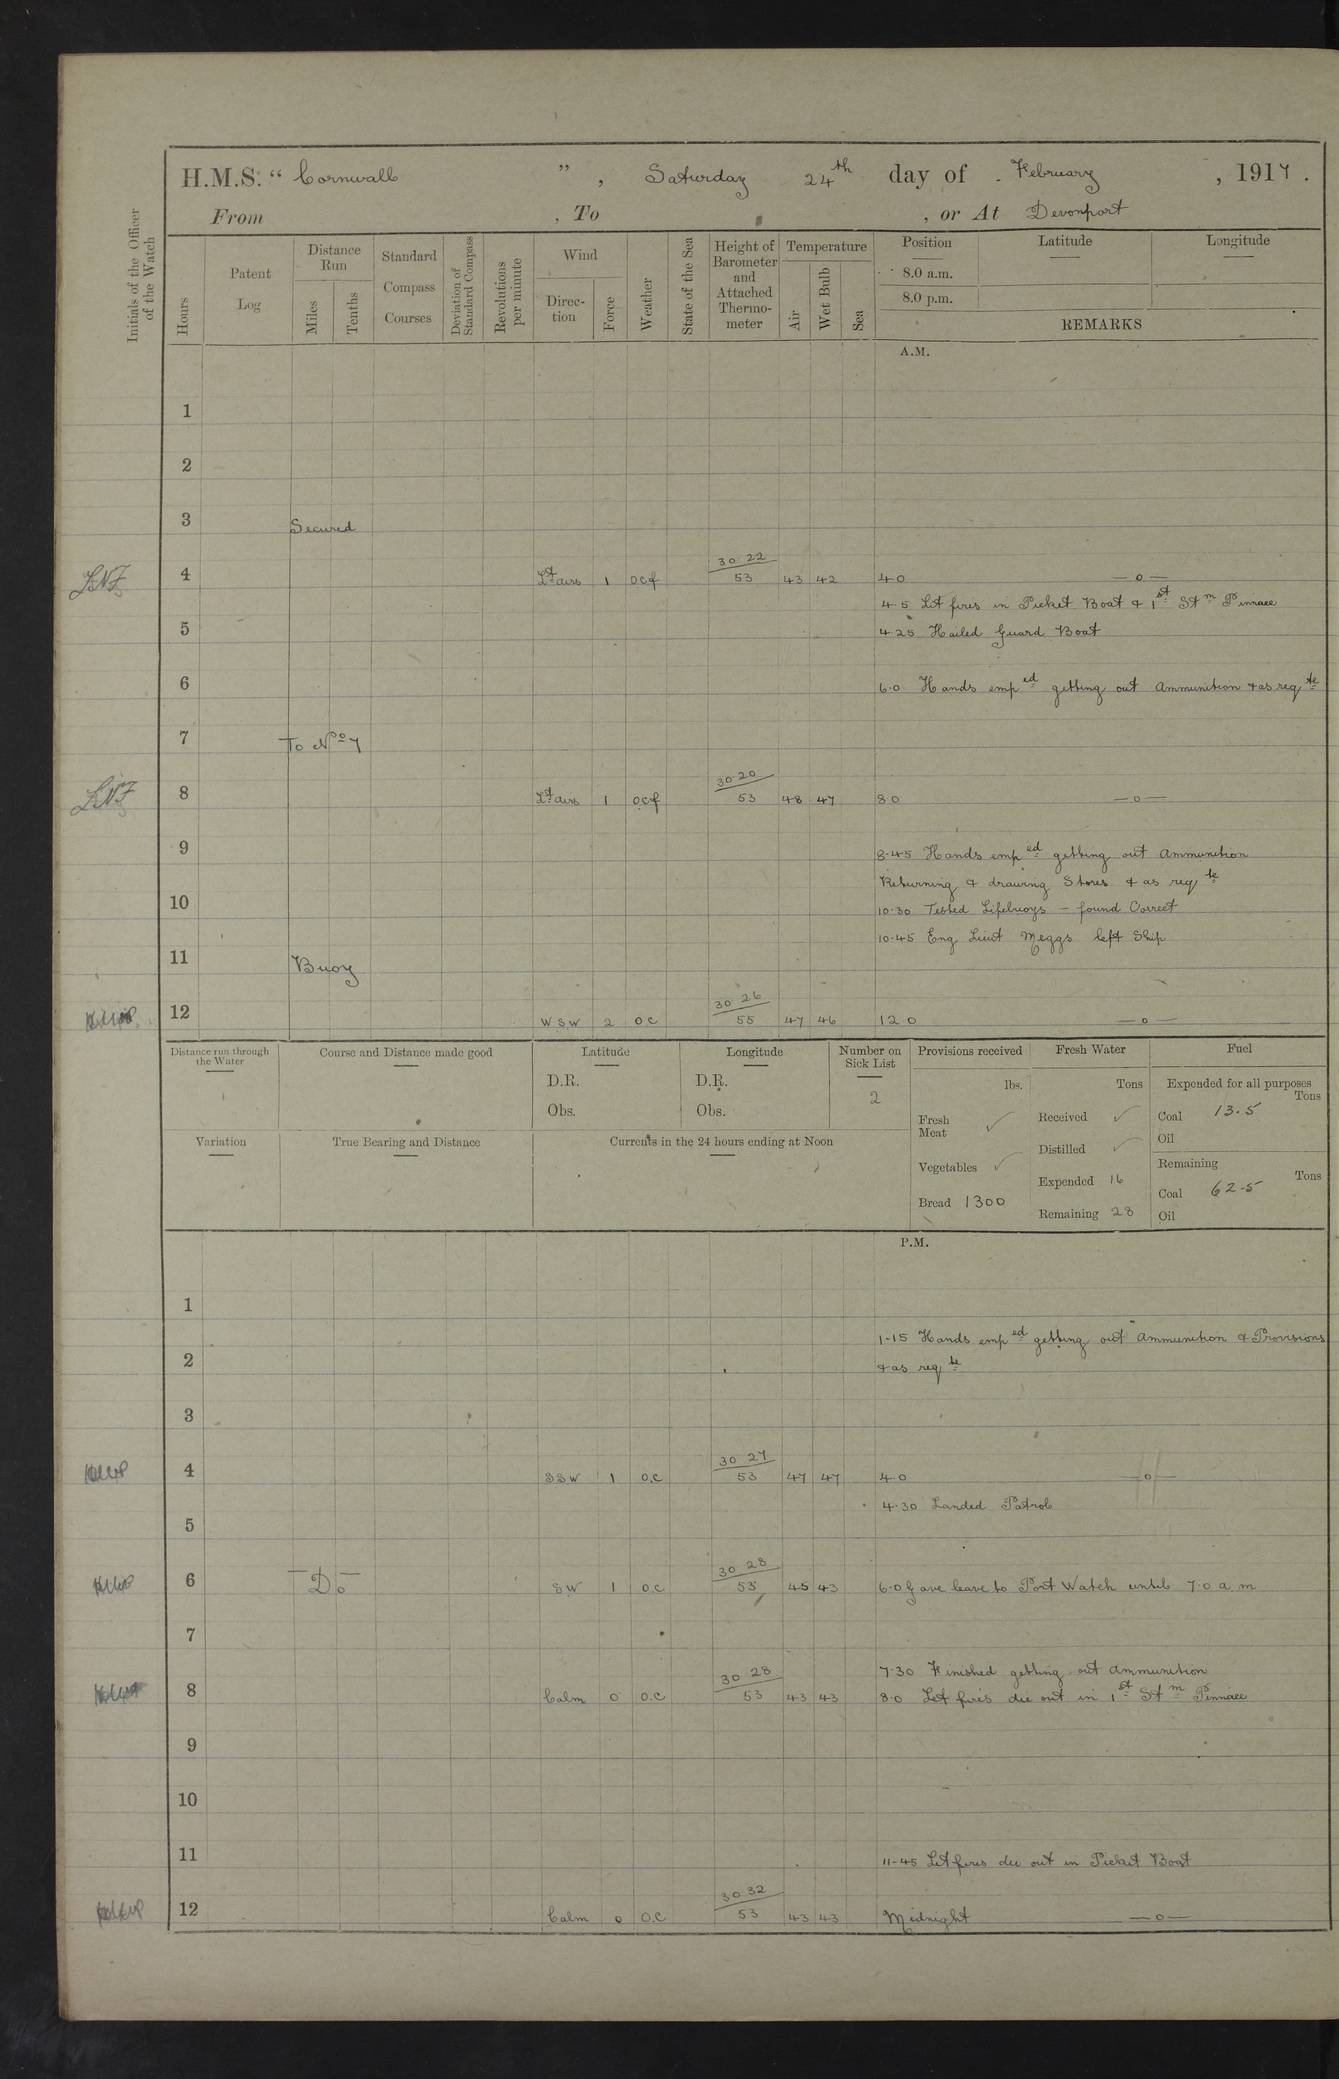 H.M.S. "Cornwall", Saturday 24th day of February, 1917.
From , To , or At Devonport
Initials of the Officer of the Watch
Hours
Patent Log
Distance Run
Miles
Tenths
Standard Compass Courses
Deviation of Standard Compass
Revolutions per minute
Wind
Direc-tion
Force
Weather
State of the Sea
Height of Barometer and Attached Thermo-meter
Temperature
Air
Wet Bulb
Sea
Position
8.0 a.m.
8.0 p.m.
Latitude
Longitude
REMARKS
A.M.
1
2
3 Secured
4 Lt airs 1 ocf 30.22 53 43 42 4.0 —o—
4.5 Lit fires in Picket Boat & 1st Stm Pinnace
5 4.25 Hailed Guard Boat
6 6.0 Hands emped getting out Ammunition & as reqte
7 To No 7
8 Lt airs 1 ocf 30.20 53 48 47 8.0 —o—
9 8.45 Hands emped getting out Ammunition
Returning & drawing Stores & as reqte
10 10.30 Tested Lifebuoys - found Correct
10.45 Eng Lieut Meggs left Ship
11 Buoy
12 WSW 2 oc 30.26 55 47 46 12.0 —o—
Distance run through the Water
Course and Distance made good
Latitude
D.R.
Obs.
Longitude
D.R.
Obs.
Number on Sick List
2
Provisions received
lbs.
Fresh Meat ✓
Vegetables ✓
Bread 1300
Fresh Water
Tons
Received ✓
Distilled ✓
Expended 16
Remaining 28
Fuel
Expended for all purposes
Tons
Coal 13.5
Oil
Remaining
Tons
Coal 62.5
Oil
Variation
True Bearing and Distance
Currents in the 24 hours ending at Noon
P.M.
1
1-15 Hands emped getting out Ammunition & Provisions
2 & as reqte
3
4 SSW 1 o.c 30.27 53 47 47 4.0 —o—
4.30 Landed Patrol
5
6 Do SW 1 o.c 30.28 53 45 43 6.0 Gave leave to Port Watch until 7.0 a.m
7
7.30 Finished getting out Ammunition
8 Calm 0 o.c 30.28 53 43 43 8.0 Let fires die out in 1st Stm Pinnace
9
10
11
11-45 Let fires die out in Picket Boat
12 Calm 0 o.c 30.32 53 43 43 Midnight —o—